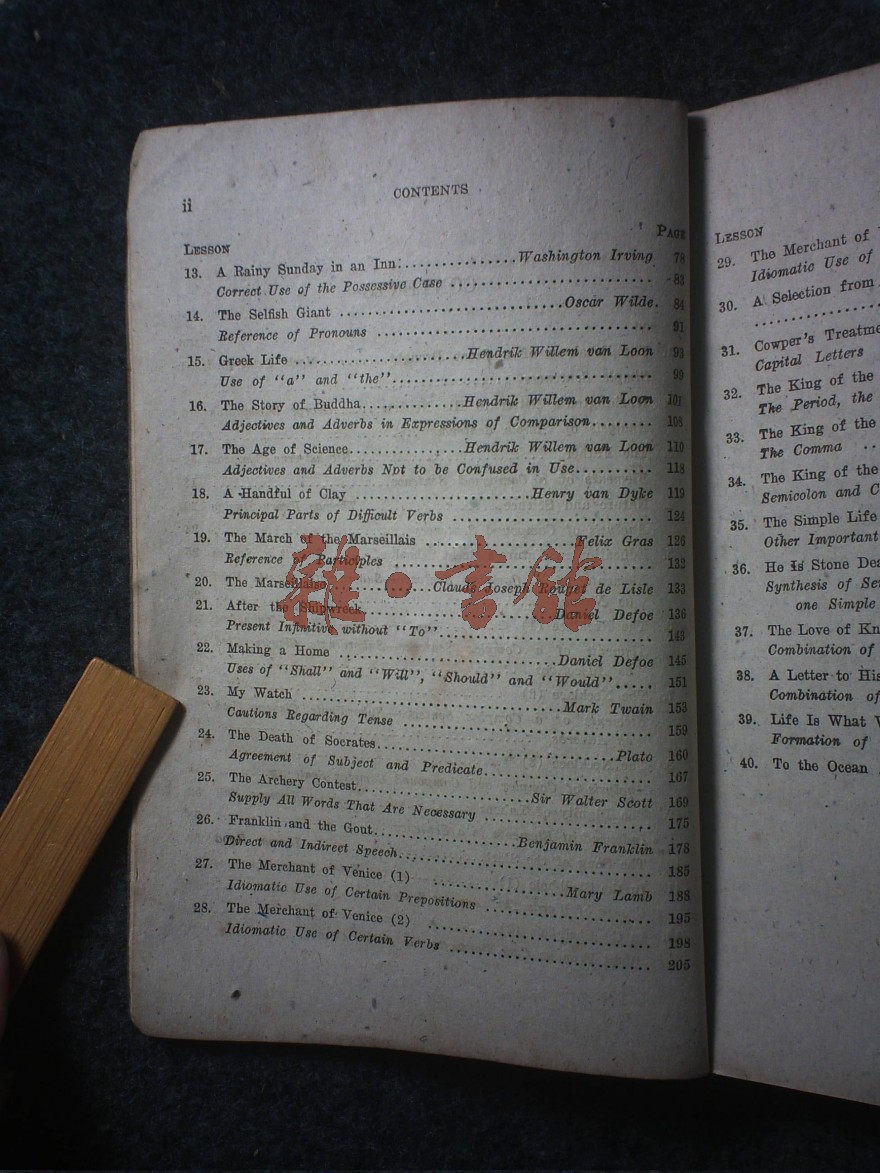 ii
CONTENTS
LESSON
PAGE
13. A Rainy Sunday in an Inn...............Washington Irving 78
Correct Use of the Possessive Case .......................... 83
14. The Selfish Giant .............................Oscar Wilde. 84
Reference of Pronouns ................................... 91
15. Greek Life ......................Hendrik Willem van Loon 93
Use of "a" and "the".................................. 99
16. The Story of Buddha.............Hendrik Willem van Loon 101
Adjectives and Adverbs in Expressions of Comparison........ 108
17. The Age of Science...............Hendrik Willem van Loon 110
Adjectives and Adverbs Not to be Confused in Use.......... 118
18. A Handful of Clay .......................Henry van Dyke 119
Principal Parts of Difficult Verbs .......................... 124
19. The March of the Marseillais ....................Felix Gras 126
Reference of Participles ................................... 132
20. The Marseillaise..............Claude Joseph Rouget de Lisle 133
21. After the Shipwreck..........................Daniel Defoe 136
Present Infinitive without "To"............................ 143
22. Making a Home .............................Daniel Defoe 145
Uses of "Shall" and "Will", "Should" and "Would"..... 151
23. My Watch ..................................Mark Twain 153
Cautions Regarding Tense ................................ 159
24. The Death of Socrates...............................Plato 160
Agreement of Subject and Predicate....................... 167
25. The Archery Contest.......................Sir Walter Scott 169
Supply All Words That Are Necessary ..................... 175
26. Franklin and the Gout...................Benjamin Franklin 178
Direct and Indirect Speech................................ 185
27. The Merchant of Venice (1) .................Mary Lamb 188
Idiomatic Use of Certain Prepositions ..................... 195
28. The Merchant of Venice (2) ............................ 198
Idiomatic Use of Certain Verbs .......................... 205
雜·書館
LESSON
29. The Merchant of
Idiomatic Use of
30. A Selection from
31. Cowper's
Capital Letters
32. The King of the
The Period, the
33. The King of the
The Comma ..
34. The King of the
Semicolon and
35. The Simple Life
Other Important
36. He Is Stone
Synthesis of
one Simple
37. The Love of
Combination of
38. A Letter to His
Combination of
39. Life Is What
Formation of
40. To the Ocean